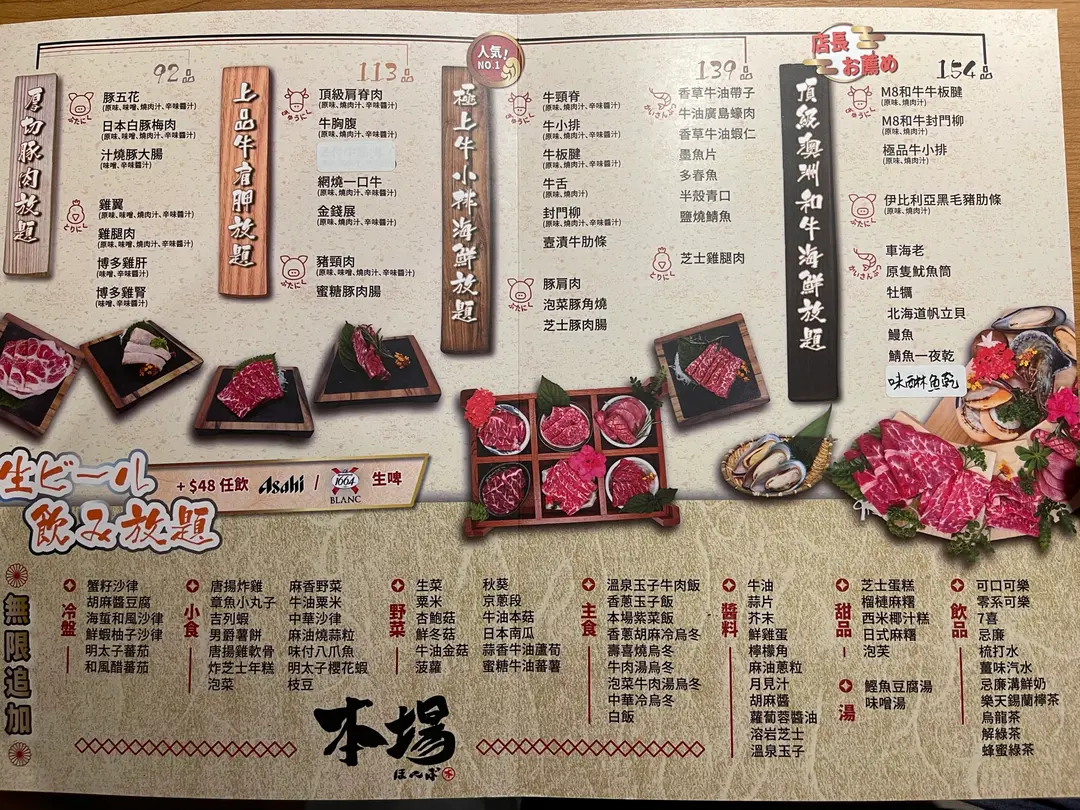 厚切豚肉放題
92品
豚五花
(原味、味噌、燒肉汁、辛味醬汁)
日本白豚梅肉
(原味、味噌、燒肉汁、辛味醬汁)
汁燒豚大腸
(味噌、辛味醬汁)
ぶたにく
雞翼
(原味、味噌、燒肉汁、辛味醬汁)
雞腿肉
(原味、味噌、燒肉汁、辛味醬汁)
博多雞肝
(味噌、辛味醬汁)
博多雞腎
(味噌、辛味醬汁)
とりにく
上品牛肩胛放題
113品
頂級肩脊肉
(原味、燒肉汁、辛味醬汁)
牛胸腹
(原味、燒肉汁、辛味醬汁)
網燒一口牛
(原味、燒肉汁、辛味醬汁)
金錢展
(原味、燒肉汁、辛味醬汁)
ぎゅうにく
豬頸肉
(原味、味噌、燒肉汁、辛味醬汁)
蜜糖豚肉腸
ぶたにく
人気!
NO.1
極上牛小排海鮮放題
139品
牛頸脊
(原味、燒肉汁、辛味醬汁)
牛小排
(原味、燒肉汁、辛味醬汁)
牛板腱
(原味、燒肉汁、辛味醬汁)
牛舌
(原味、燒肉汁)
封門柳
(原味、燒肉汁、辛味醬汁)
壺漬牛肋條
ぎゅうにく
豚肩肉
泡菜豚角燒
芝士豚肉腸
ぶたにく
香草牛油帶子
牛油廣島蠔肉
香草牛油蝦仁
墨魚片
多春魚
半殼青口
鹽燒鯖魚
かいさんぶつ
芝士雞腿肉
とりにく
店長
お薦め
頂級澳洲和牛海鮮放題
154品
M8和牛牛板腱
(原味、燒肉汁)
M8和牛封門柳
(原味、燒肉汁)
極品牛小排
(原味、燒肉汁)
ぎゅうにく
伊比利亞黑毛豬肋條
(原味、燒肉汁)
ぶたにく
車海老
原隻魷魚筒
牡蠣
北海道帆立貝
鰻魚
鯖魚一夜乾
味醂魚乾
かいさんぶつ
生ビール
飲み放題
+ $48 任飲 Asahi / 1664 BLANC 生啤
無限追加
冷盤
蟹籽沙律
胡麻醬豆腐
海蜇和風沙律
鮮蝦柚子沙律
明太子蕃茄
和風醋蕃茄
小食
唐揚炸雞
章魚小丸子
吉列蝦
男爵薯餅
唐揚雞軟骨
炸芝士年糕
泡菜
麻香野菜
牛油粟米
中華沙律
麻油燒蒜粒
味付八爪魚
明太子櫻花蝦
枝豆
野菜
生菜
粟米
杏鮑菇
鮮冬菇
牛油金菇
菠蘿
秋葵
京蔥段
牛油本菇
日本南瓜
蒜香牛油蘆筍
蜜糖牛油蕃薯
主食
溫泉玉子牛肉飯
香蔥玉子飯
本場紫菜飯
香蔥胡麻冷烏冬
壽喜燒烏冬
牛肉湯烏冬
泡菜牛肉湯烏冬
中華冷烏冬
白飯
醬料
牛油
蒜片
芥末
鮮雞蛋
檸檬角
麻油蔥粒
月見汁
胡麻醬
蘿蔔蓉醬油
溶岩芝士
溫泉玉子
甜品
芝士蛋糕
榴槤麻糬
西米椰汁糕
日式麻糬
泡芙
湯
鰹魚豆腐湯
味噌湯
飲品
可口可樂
零系可樂
7喜
忌廉
梳打水
薑味汽水
忌廉溝鮮奶
樂天錫蘭檸茶
烏龍茶
解綠茶
蜂蜜綠茶
本場
ほんば